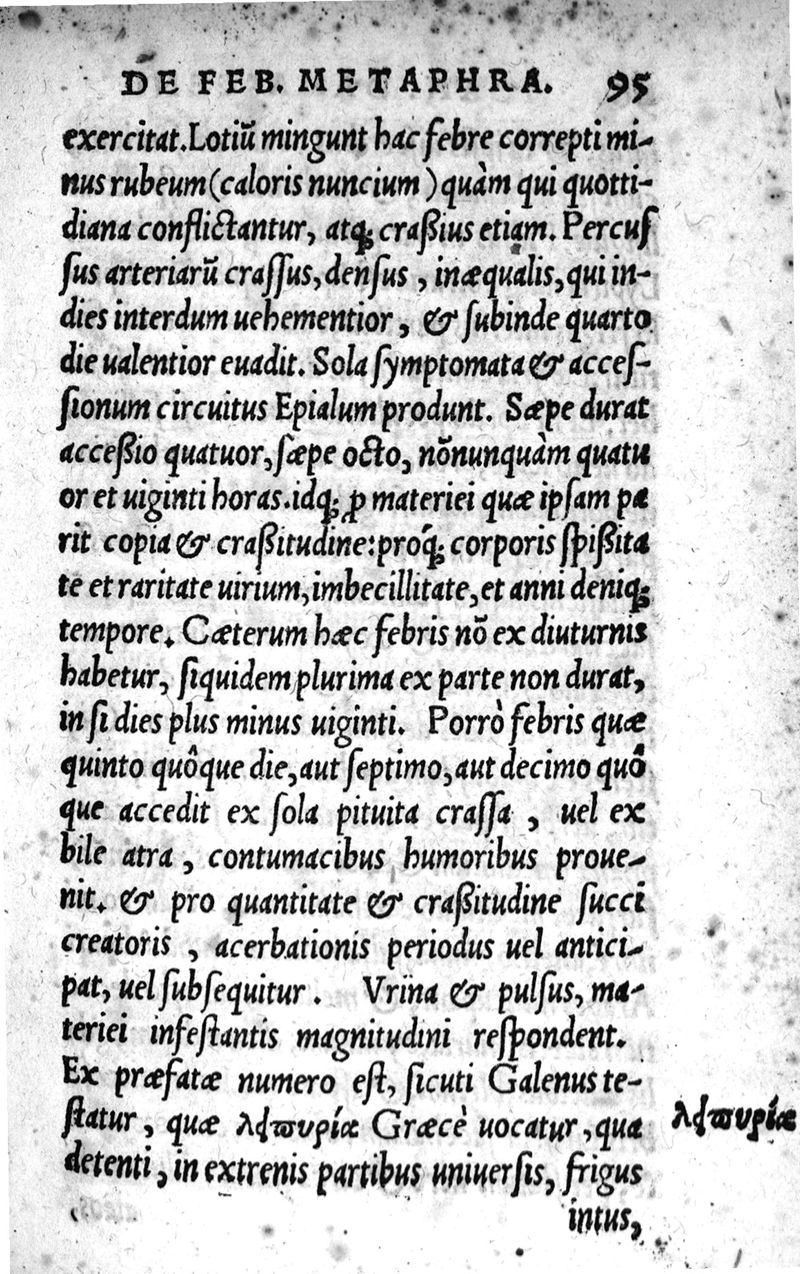 DE FEB. METAPHRA. 95
exercitat. Lotiũ mingunt hac febre correpti mi-
nus rubeum (caloris nuncium) quàm qui quotti-
diana conflictantur, atq; craßius etiam. Percuſ
ſus arteriarũ craſſus, denſus, inæqualis, qui in-
dies interdum uehementior, & ſubinde quarto
die ualentior euadit. Sola ſymptomata & acceſ-
ſionum circuitus Epialum produnt. Sæpe durat
acceßio quatuor, ſæpe octo, nõnunquàm quatu
or et uiginti horas. idq; ꝓ materiei quæ ipſam pa
rit copia & craßitudine: proq́; corporis ſpißita
te et raritate uirium, imbecillitate, et anni deniq;
tempore. Cæterum hæc febris nõ ex diuturnis
habetur, ſiquidem plurima ex parte non durat,
in ſi dies plus minus uiginti. Porrò febris quæ
quinto quôque die, aut ſeptimo, aut decimo quô
que accedit ex ſola pituita craſſa, uel ex
bile atra, contumacibus humoribus proue-
nit. & pro quantitate & craßitudine ſucci
creatoris, acerbationis periodus uel antici-
pat, uel ſubſequitur. Vrina & pulſus, ma-
teriei infeſtantis magnitudini reſpondent.
Ex præfatæ numero eſt, ſicuti Galenus te-
ſtatur, quæ λξϖυρία Græcè uocatur, qua
λξϖυρία
detenti, in extrenis partibus uniuerſis, frigus
intus,